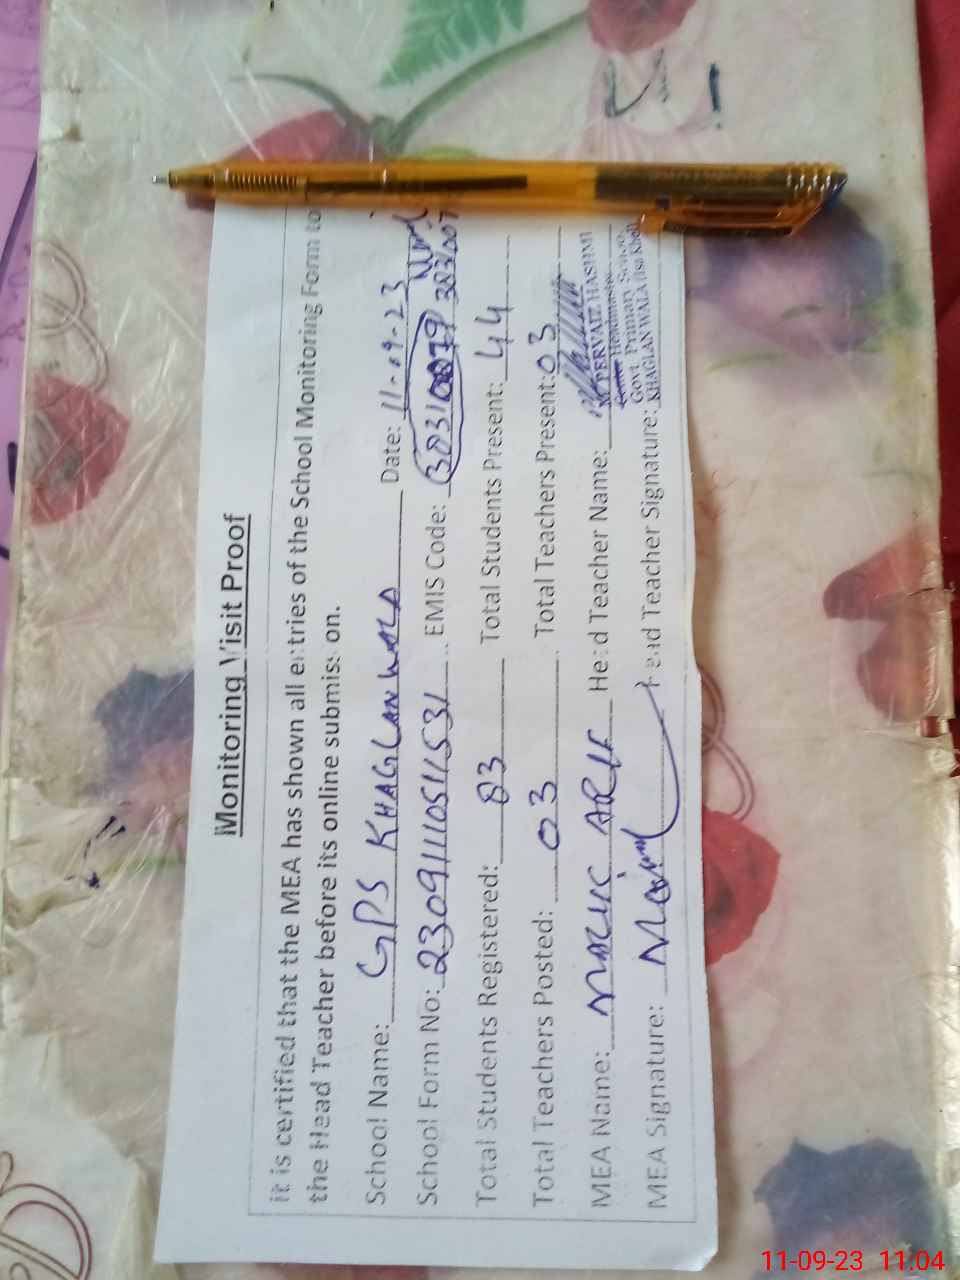 Monitoring Visit Proof
It is certified that the MEA has shown all entries of the School Monitoring Form to
the Head Teacher before its online submission.
School Name: GPS KHAGLANWALA Date: 11-09-23
School Form No: 2309111051531 EMIS Code: 38310079 3831007
Total Students Registered: 83 Total Students Present: 44
Total Teachers Posted: 03 Total Teachers Present: 03
MEA Name: MALIK ARIF Head Teacher Name: M PERVAIZ HASHMI
Center Headmaster
Govt Primary School
KHAGLANWALA (Isa Khel)
MEA Signature: Head Teacher Signature:
11-09-23 11:04